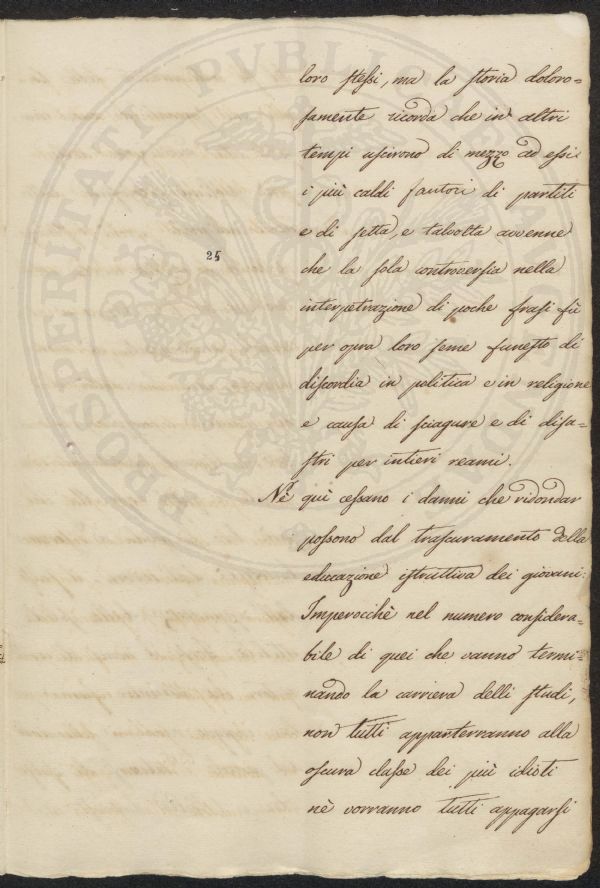 loro stessi, ma la storia doloro=
samente ricorda che in altri
tempi uscirono di mezzo ad essi
i più caldi fautori di partiti
e di setta, e talvolta avvenne
25
che la sola controversia nella
interpetrazione di poche frasi fù
per opra loro seme funesto di
discordia in politica e in religione
e causa di sciagure e di disa=
stri per intieri reami.
Nè quì cessano i danni che ridondar
possono dal trascuramento della
educazione istruttiva dei giovani:
Imperocchè nel numero considera=
bile di quei che vanno termi=
nando la carriera delli studi,
non tutti apparterranno alla
oscura classe dei più idioti
nè vorranno tutti appagarsi
PROSPERITATI PVBLICAE